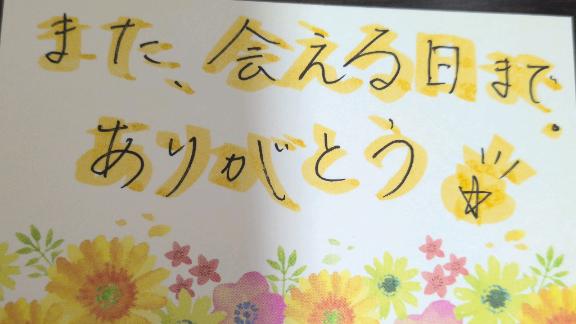 また、会える日まで。
ありがとう